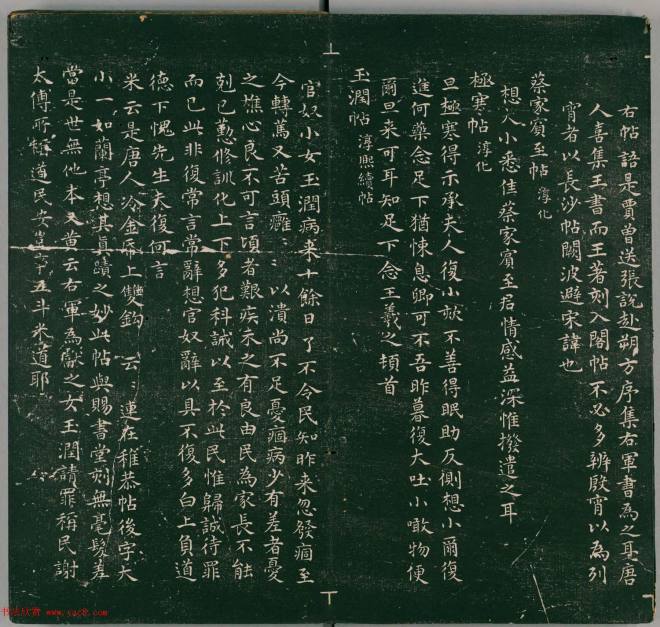 右帖語是賈曾送張說赴朔方序集右軍書為之耳唐
人喜集王書而王著刻入閣帖不必多辨殷宵以為列
宵者以長沙帖闕波避宋諱也
蔡家賓至帖 淳化
想大小悉佳蔡家賓至君情感益深惟撥遣之耳
極寒帖 淳化
旦極寒得示承夫人復小欬不善得眠助反側想小爾復
進何藥念足下猶悚息卿可不吾昨暮復大吐小噉物便
爾旦來可耳知足下念王羲之頓首
玉潤帖 淳熙續帖
官奴小女玉潤病來十餘日了不令民知昨來忽發痼至
今轉篤又苦頭癰:以潰尚不足憂痼病少有差者憂
之燋心良不可言頃者艱疾未之有良由民為家長不能
剋已懃修訓化上下多犯科誡以至於此民惟歸誠待罪
而已此非復常言常辭想官奴辭以具不復多白上負道
德下愧先生夫復何言
米云是唐人冷金紙上雙鉤 云:連在稚恭帖後字大
小一如蘭亭想其真蹟之妙此帖與賜書堂刻無毫髮差
當是世無他本又黃云右軍為獻之女玉潤請罪稱民謝
太傅所稱道民安豈亦五斗米道耶
书法欣赏 www.yac8.com